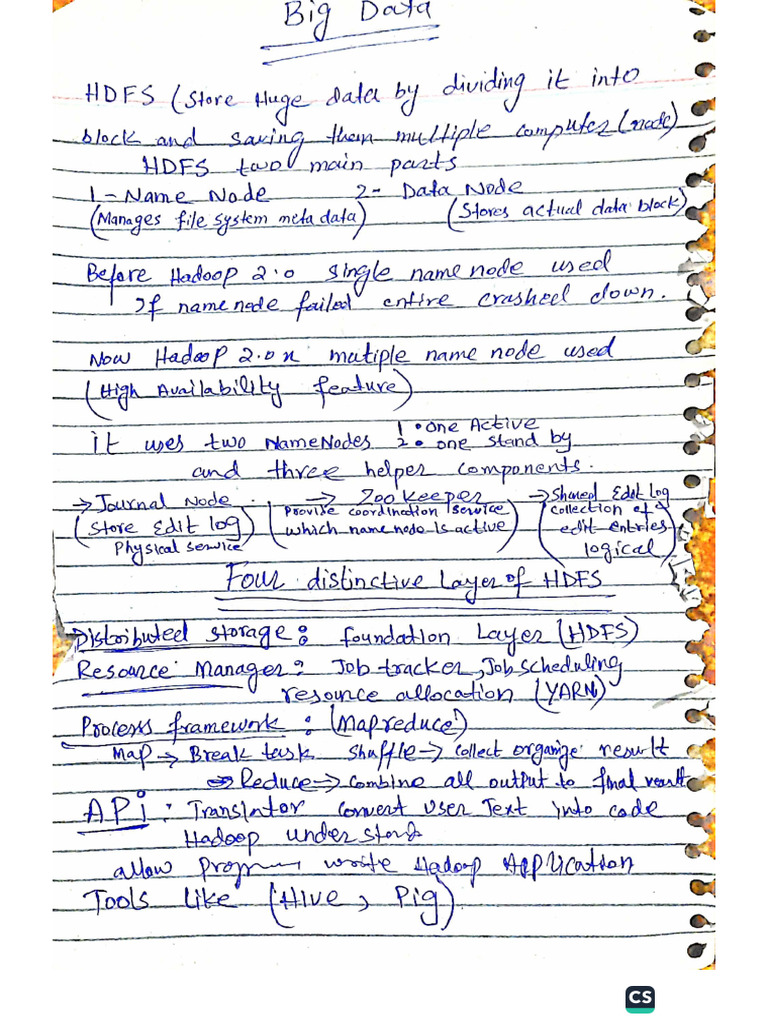 Big Data
HDFS (Store Huge data by dividing it into
block and saving them multiple computer (node)
HDFS two main parts
1 - Name Node 2 - Data Node
(Manages file system meta data) (Stores actual data block)
Before Hadoop 2.0 single name node used
If name node failed entire crashed down.
Now Hadoop 2.0 x mutiple name node used
(High Availability feature)
it uses two NameNodes 1 • one Active
2 • one stand by
and three helper components.
→ Journal Node → Zoo keeper → Shared Edit Log
(Store Edit log) (Provide coordination service (collection of
which name node is active) edit entries
Physical service logical)
Four distinctive Layer of HDFS
Distributed storage: foundation Layer (HDFS)
Resource Manager: Job tracker, Job scheduling
resource allocation (YARN)
Process framework: (Mapreduce)
Map → Break task Shuffle → collect organize result
→ Reduce → combine all output to final result
APi : Translator convert User Text into code
Hadoop understand
allow write Hadoop Application
Tools like (Hive, Pig)
CS